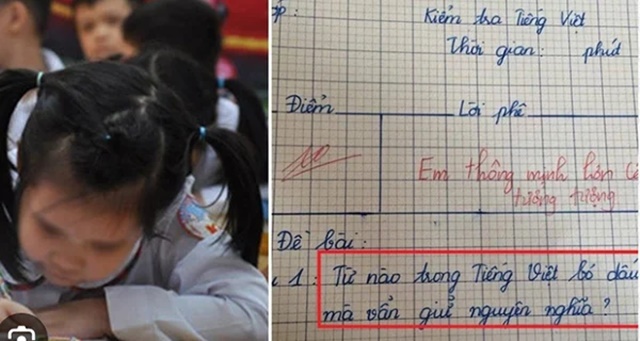 ớp :
Kiểm tra Tiếng Việt
Thời gian : phút
Điểm Lời phê
10
Em thông minh hơn
tưởng tượng
Đề bài :
1 : Từ nào trong Tiếng Việt bỏ dấu
mà vẫn giữ nguyên nghĩa ?